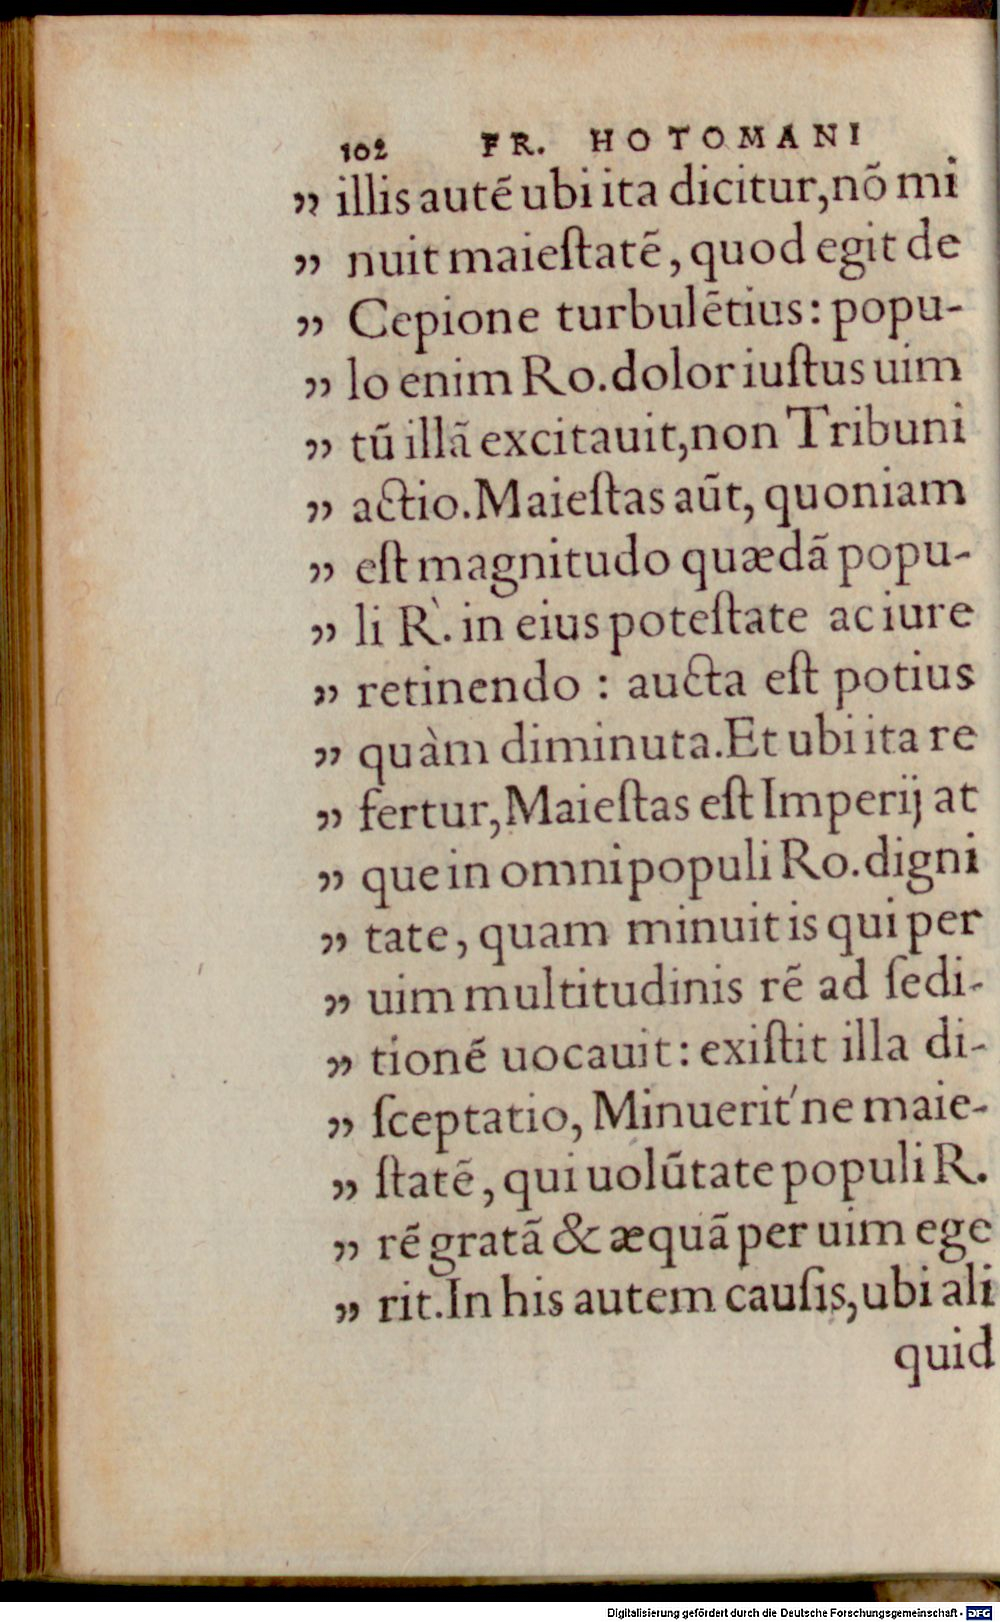 102 FR. HOTOMANI
„ illis autē ubi ita dicitur, nõ mi
„ nuit maieſtatē, quod egit de
„ Cepione turbulētius: popu-
„ lo enim Ro. dolor iuſtus uim
„ tũ illã excitauit, non Tribuni
„ actio. Maieſtas aũt, quoniam
„ eſt magnitudo quædã popu-
„ li R̀. in eius poteſtate ac iure
„ retinendo : aucta eſt potius
„ quàm diminuta. Et ubi ita re
„ fertur, Maieſtas eſt Imperij at
„ que in omni populi Ro. digni
„ tate, quam minuit is qui per
„ uim multitudinis rē ad ſedi-
„ tionē uocauit: exiſtit illa di-
„ ſceptatio, Minuerit'ne maie-
„ ſtatē, qui uolũtate populi R.
„ rē gratã & æquã per uim ege
„ rit. In his autem cauſis, ubi ali
quid
Digitalisierung gefördert durch die Deutsche Forschungsgemeinschaft - DFG